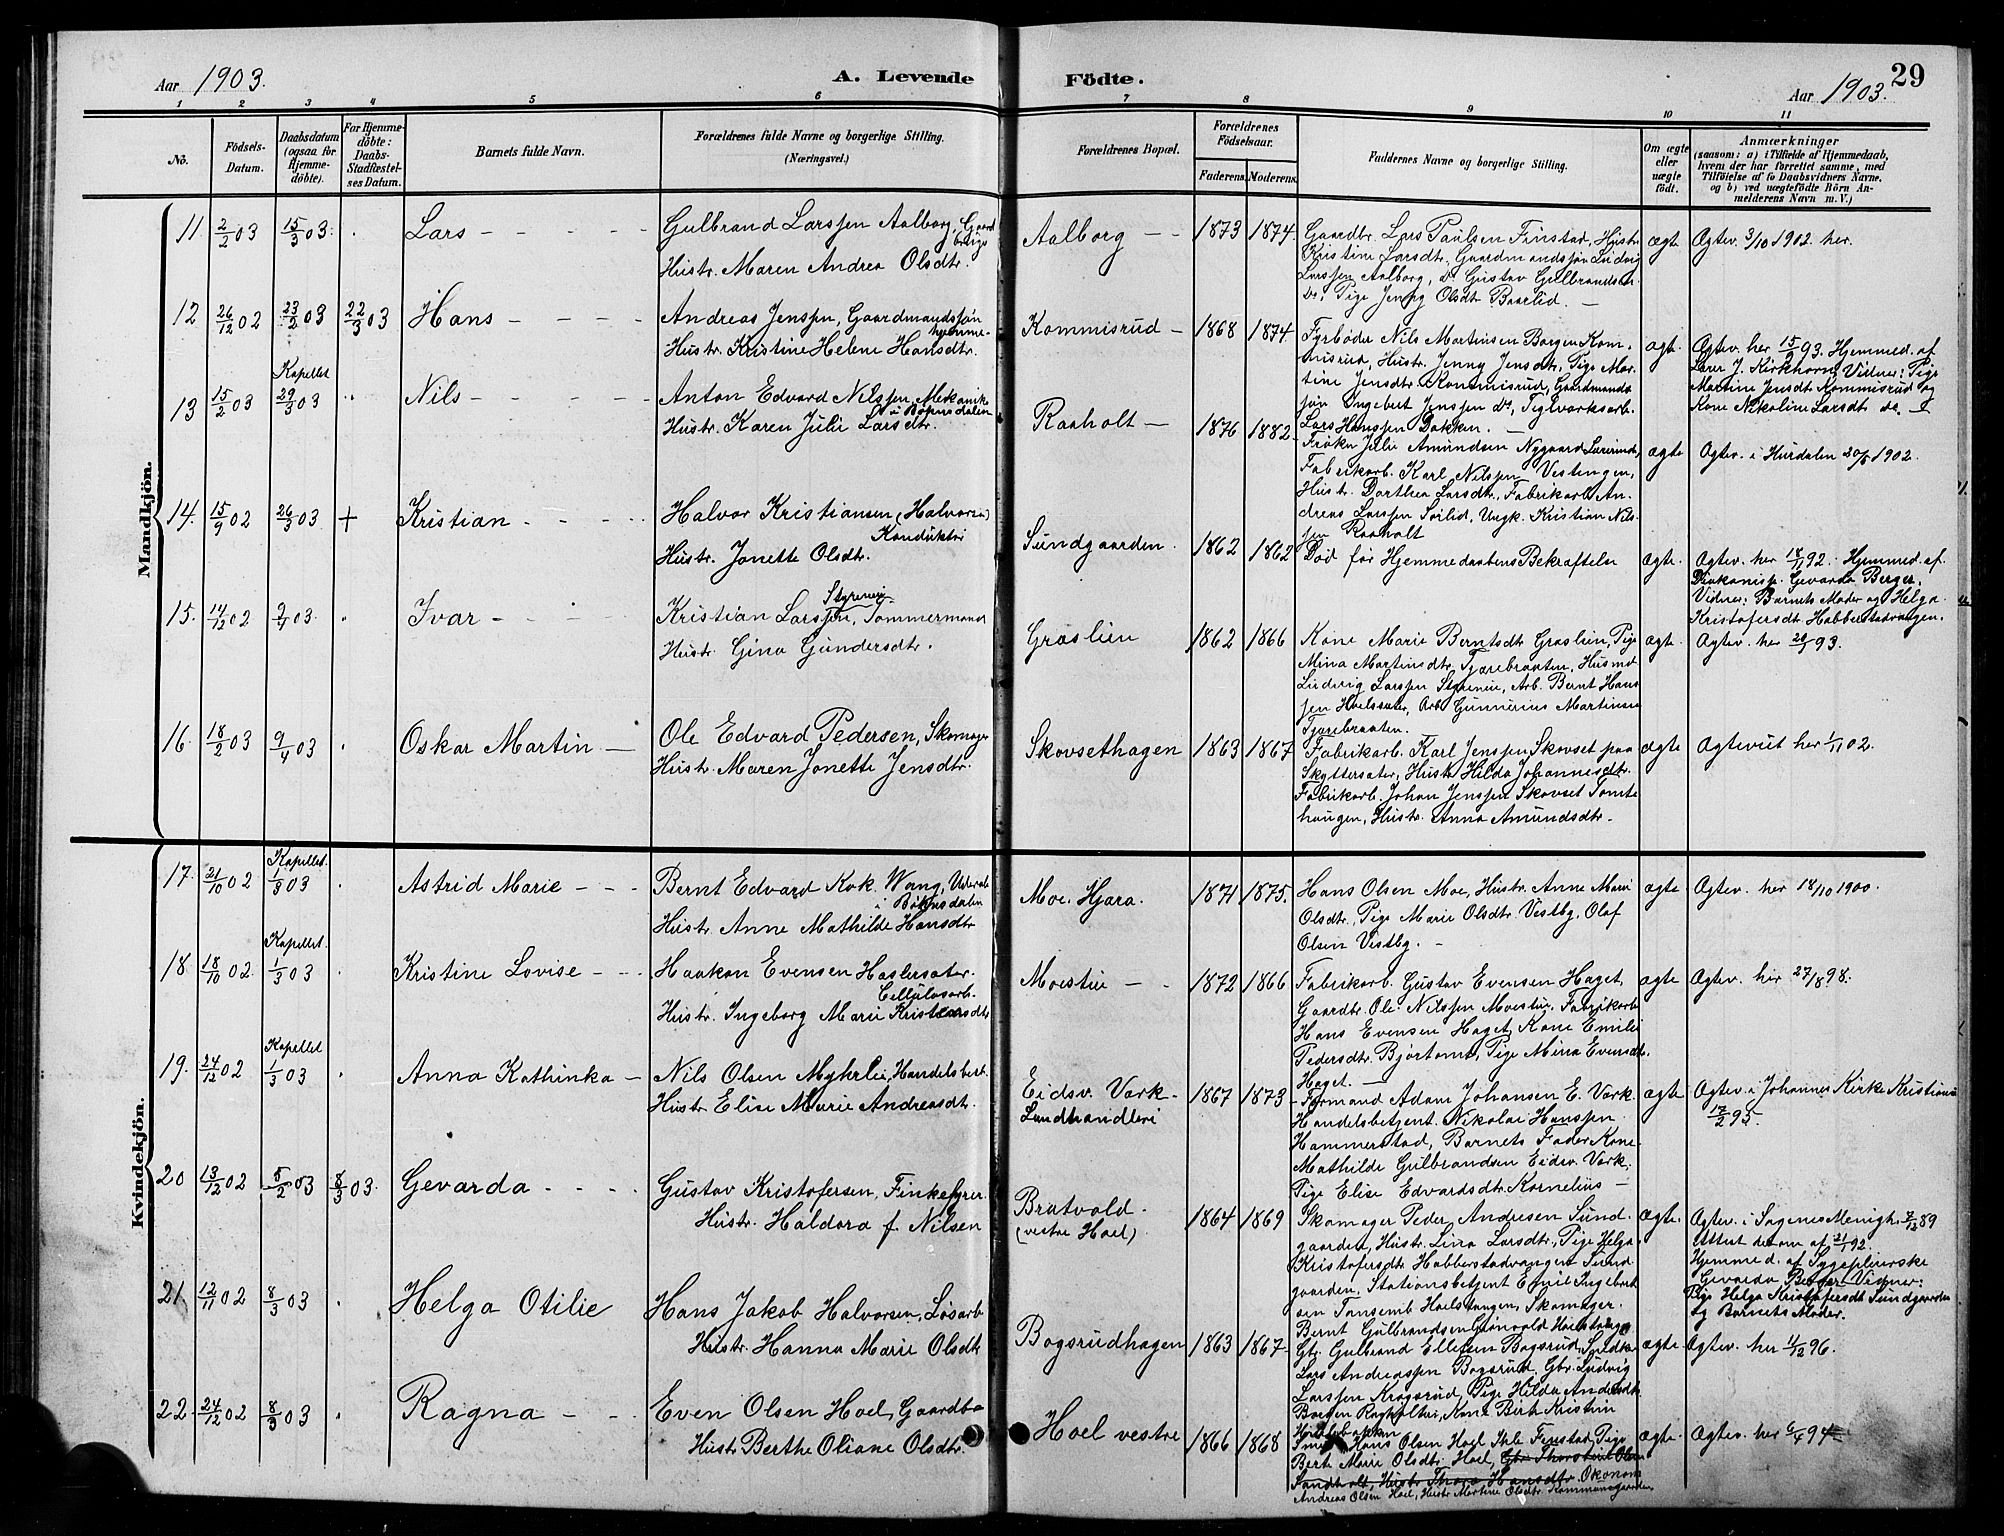 Aar 1903.
A. Levende Födte.
Aar 1903.
29
1 2 3 4 5 6 7 8 9 10 11
No.
Födsels-Datum.
Daabsdatum (ogsaa for Hjemme-döbte).
For Hjemme-döbte: Daabs-Stadfæstel-ses Datum.
Barnets fulde Navn.
Forældrenes fulde Navne og borgerlige Stilling. (Næringsvei.)
Forældrenes Bopæl.
Forældrenes Födselsaar.
Faderens. Moderens.
Faddernes Navne og borgerlige Stilling.
Om ægte eller uægte födt.
Anmærkninger
(saasom: a) i Tilfælde af Hjemmedaab, hvem der har forrettet samme, med Tilföielse af to Daabsvidners Navne. og b) ved uægtefödte Börn An-melderens Navn m. V.)
Mandkjön.
11. 2/2 03 15/3 03. Lars
Gulbrand Larssen Aalborg, Gaardbruger
Hustr. Maren Andrea Olsdtr.
Aalborg 1873 1874.
Gaardbr. Lars Paulsen Finstad, Hustr.
Kristine Larsdtr. Gaardmandssøn Ludvig
Larssen Aalborg, do Gustav Gulbrandsen
do, Pige Jenny Olsdtr Baarlid.
ægte Ægtev. 3/10 1902 her.
12 26/12 02 23/2 03 22/3 03 Hans
Andreas Jenssen, Gaardmandssøn hjemme-
Hustr. Kristine Helene Hansdtr.
Kommisrud 1868 1874
Fyrbøder Nils Martinsen Borgen Kom-
misrud, Hustr. Jenny Jensdtr, Pige Mar-
tine Jensdtr Kommisrud, Gaardmands
søn Ingebert Jenssen do, Teglværksarb.
Lars Hanssen Dokken.
ægte. Ægtev. her 15/9 93. Hjemmed. af
Lærer J. Kirkhorn, Vidner: Pige
Martine Jensdtr Kommisrud og
Kone Nikoline Larsdtr do.
13 15/2 03 Kapellet 29/3 03 Nils
Anton Edvard Nilssen, Mekanik. i Bøhnsdalen
Hustr. Karen Julie Larsdtr.
Raaholt 1876 1882
Frøken Julie Amundsen Nygaard Lærerinde,
Fabrikarb. Karl Nilssen Vestengen,
Hustr. Dorthea Larsdtr, Fabrikarb. An-
dreas Larssen Sørlid, Ungk. Kristian Nils-
sen Raaholt
ægte Ægtev. i Hurdalen 20/5 1902.
14. 15/9 02 26/3 03. + Kristian
Halvor Kristiansen (Halvorsen) Konduktør
Hustr. Jonette Olsdtr.
Sundgaarden. 1862 1862
Død før Hjemmedaabens Bekræftelse
ægte. Ægtev. her 18/11 92. Hjemmed. af
Diakonisse Gevarda Berger.
Vidner: Barnets Moder og Helga
Kristofersdt. Habberstadvangen.
15. 14/12 02 2/4 03. Ivar
Kristian Larssen, Styrenin Tømmermand
Hustr. Gina Gundersdtr.
Graslien 1862 1866
Kone Marie Berntsdtr Graslien, Pige
Mina Martinsdtr Tjærebraaten, Husmd
Ludvig Larssen Styrenin, Arb. Bernt Hans
sen Hoelssæter, Arb Gunnerius Martinsen
Tjærebraaten.
ægte. Ægtev. her 20/1 93.
16. 18/2 03 9/4 03 Oskar Martin
Ole Edvard Pedersen, Skomager
Hustr. Maren Jonette Jensdtr.
Skovsethagen 1863 1867
Fabrikarb. Karl Jenssen Skovset paa
Skyttersæter, Hustr Hilda Johannesdtr.
Fabrikarb. Johan Jenssen Skovset Tomte
haugen, Hustr. Anna Amundsdtr.
ægte Ægteviet her 1/11 02.
Kvindekjön.
17. 21/10 02 Kapellet. 1/3 03 Astrid Marie
Bernt Edvard Kok. Wang, i Bøhnsdalen
Hustr. Anne Mathilde Hansdtr
Moe. Hjera. 1871 1875.
Hans Olsen Moe, Hustr. Anne Marie
Olsdtr, Pige Marie Olsdtr. Vestby, Olaf
Olsen Vestby.
ægte Ægtev. her 18/10 1900.
18. 18/10 02 Kapellet. 1/3 03 Kristine Lovise
Haakon Evensen Haslersæter. Cellulosarb.
Hustr. Ingeborg Marie Kristiansdtr
Moestue 1872 1866
Fabrikarb. Gustav Evensen Haget,
Gaardbr. Ole Nilssen Moestue, Fabrikarb
Hans Evensen Haget, Kone Emilie
Pedersdtr. Bjørtomt, Pige Mina Evensdtr.
Haget.
ægte Ægtev. her 27/8 98.
19. 24/12 02 Kapellet 1/3 03 Anna Kathinka
Nils Olsen Myhrlie, Handelsbest.
Hustr. Elise Marie Andreasdtr.
Eidsv. Værk Landhandleri 1867 1873
Formand Adam Johansen E. Værk
Handelsbetjent. Nikolai Hanssen
Hammerstad, Barnets Fader Kone
Mathilde Gulbrandsen Eidsv. Værk,
Pige Elise Edvardsdtr. Kornelius
ægte Ægtev. i Johannes Kirke Kristiania
17/2 95.
20 13/12 02 5/2 03 8/3 03. Gevarda
Gustav Kristofersen, Finkefyrer.
Hustr. Haldora f. Nilsen
Bratvold. (vestre Hoel). 1864 1869
Skomager Peder Andresen Sund-
gaarden, Hustr. Lina Larsdtr, Pige Helga
Kristofersdt. Habberstadvangen Sund-
gaarden, Stationsbetjent Emil Ingebret
sen Tansemb Hoelstangen, Skomager.
Bernt Gulbrandsen Grinvold Hoelstangen
ægte. Ægtev. i Sagenes Menigh. 7/12 89
Attest derom af 21/1 92.
Hjemmed. af Sygepleierske
Gevarda Berger. Vidner:
Pige Helga Kristofersdt Sundgaarden
og Barnets Moder.
21. 12/11 02 8/3 03 Helga Otilie
Hans Jakob Halvorsen, Løsarb
Hustr. Hanna Marie Olsdtr
Bogsrudhagen 1863 1867
Gbr. Gulbrand Ellefsen Bogsrud,
Lars Andreassen Bogsrud, Gbr. Ludvig
Larssen Krogsrud, Pige Hilda Andersdtr
ægte. Ægtev. her 11/12 96.
22. 24/12 02 8/3 03 Ragna
Even Olsen Hoel, Gaardbr
Hustr Berthe Oliane Olsdtr.
Hoel vestre 1866 1868
Hans Olsen Hoel Finstad, Pige
Berte Marie Olsdtr. Hoel, Gbr. Thorstein Olsen
Sandholt, Hustr. Thora Hansdtr. Økonom
Andreas Olsen Hoel, Hustr Martine Olsdtr Kommunegaarden
ægte. Ægtev. her 6/4 94